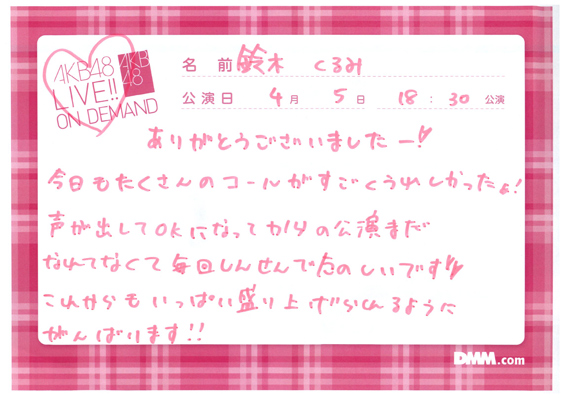 AKB48
LIVE!!
ON DEMAND
AKB
48
名 前 鈴木 くるみ
公演日 4月 5日 18:30 公演
ありがとうございましたー!
今日もたくさんのコールがすごくうれしかったよ!
声が出してOKになってからの公演まだ
なれてなくて毎回しんせんでたのしいです
これからもいっぱい盛り上げられるように
がんばります!!
DMM.com